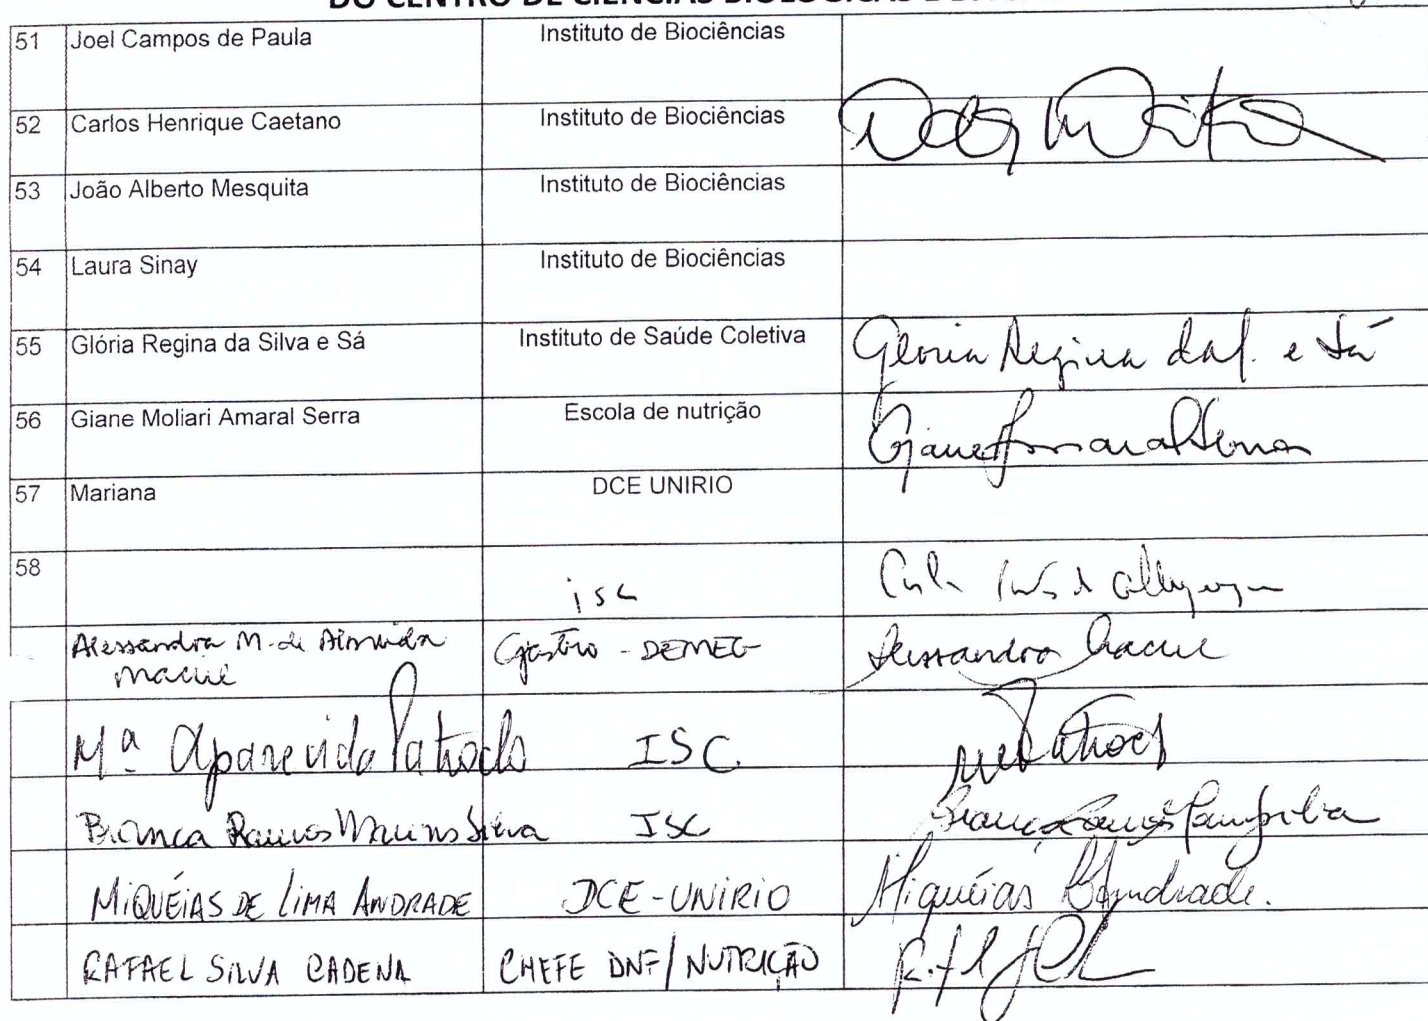 DO CENTRO DE CIÊNCIAS BIOLÓGICAS E DA
51 Joel Campos de Paula Instituto de Biociências
52 Carlos Henrique Caetano Instituto de Biociências
53 João Alberto Mesquita Instituto de Biociências
54 Laura Sinay Instituto de Biociências
55 Glória Regina da Silva e Sá Instituto de Saúde Coletiva Gloria Regina da S. e Sá
56 Giane Moliari Amaral Serra Escola de nutrição Giane Amaral Serra
57 Mariana DCE UNIRIO
58 isc
Alessandra M. de Almeida Gastro - DEMEG Alessandra Maciel
Maciel
Mª Aparecida Patroclo ISC
Bianca Ramos Marins Silva ISC Bianca Ramos
MIQUÉIAS DE LIMA ANDRADE DCE-UNIRIO Miquéias Andrade.
RAFAEL SILVA CADENA CHEFE DNF/NUTRIÇÃO